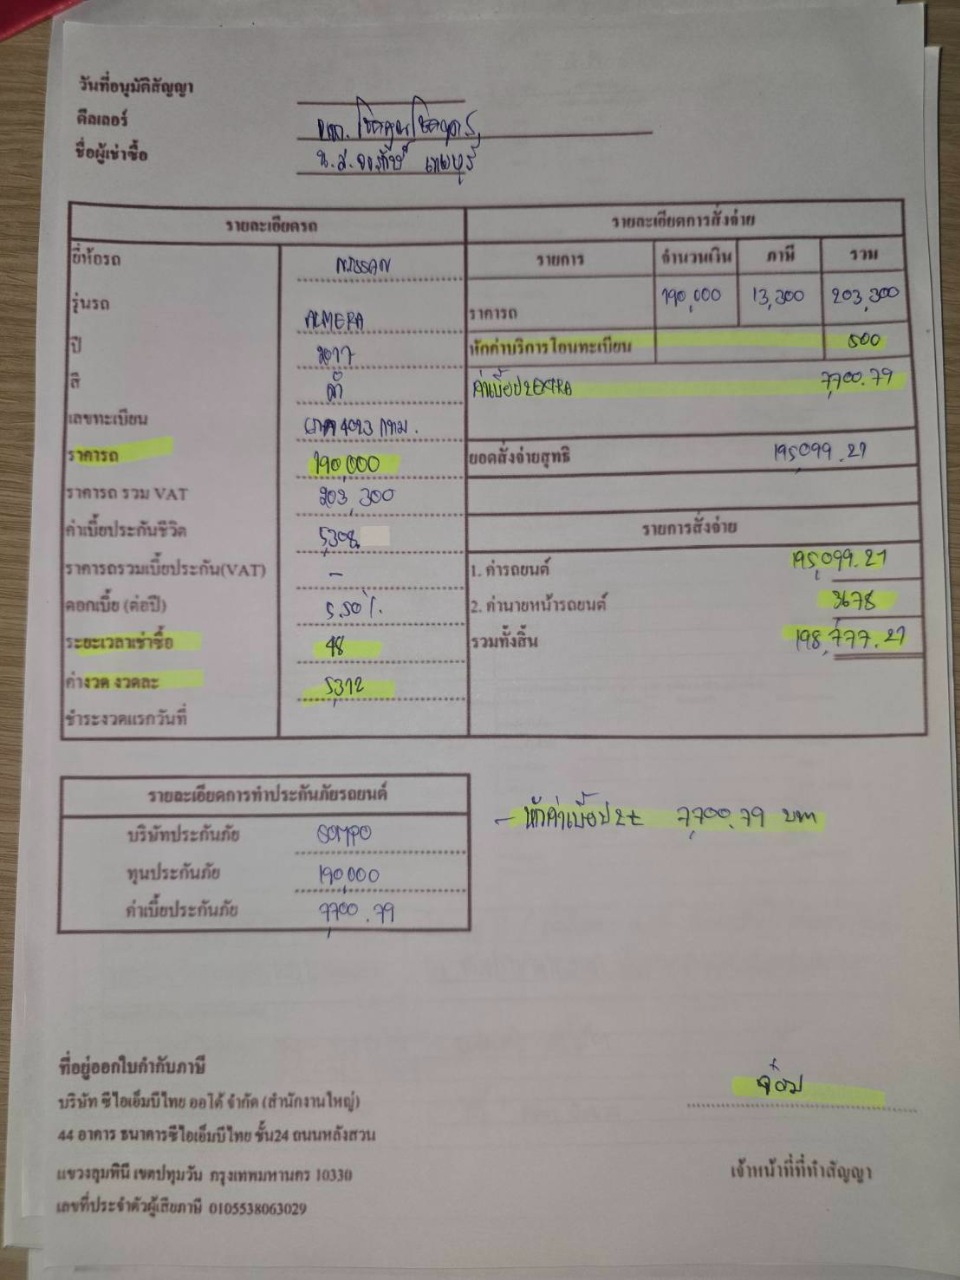 วันที่อนุมัติสัญญา
ดีลเลอร์ หจก.
ชื่อผู้เช่าซื้อ น.ส.
รายละเอียดรถ
ยี่ห้อรถ NISSAN
รุ่นรถ ALMERA
ปี 2017
สี ดำ
เลขทะเบียน 4023 กทม.
ราคารถ 190,000
ราคารถ รวม VAT 203,300
ค่าเบี้ยประกันชีวิต 5,308
ราคารถรวมเบี้ยประกัน(VAT) -
ดอกเบี้ย (ต่อปี) 5.50%
ระยะเวลาเช่าซื้อ 48
ค่างวด งวดละ 5,312
ชำระงวดแรกวันที่
รายละเอียดการสั่งจ่าย
รายการ จำนวนเงิน ภาษี รวม
ราคารถ 190,000 13,300 203,300
หักค่าบริการโอนทะเบียน 500
ค่าเบี้ยป2EXTRA 7,700.79
ยอดสั่งจ่ายสุทธิ 195,099.21
รายการสั่งจ่าย
1. ค่ารถยนต์ 195,099.21
2. ค่านายหน้ารถยนต์ 3678
รวมทั้งสิ้น 198,777.21
รายละเอียดการทำประกันภัยรถยนต์
บริษัทประกันภัย SOMPO
ทุนประกันภัย 190,000
ค่าเบี้ยประกันภัย 7,700.79
- หักค่าเบี้ยป2+ 7,700.79 บาท
ที่อยู่ออกใบกำกับภาษี
บริษัท ซีไอเอ็มบีไทย ออโต้ จำกัด (สำนักงานใหญ่)
44 อาคาร ธนาคารซีไอเอ็มบีไทย ชั้น24 ถนนหลังสวน
แขวงลุมพินี เขตปทุมวัน กรุงเทพมหานคร 10330
เลขที่ประจำตัวผู้เสียภาษี 0105538063029
จ๋อม
เจ้าหน้าที่ที่ทำสัญญา